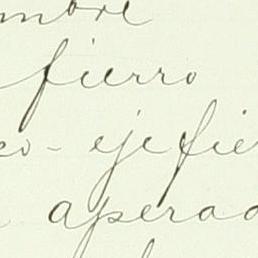 mbre
fierro
eo - ejefie
aperao